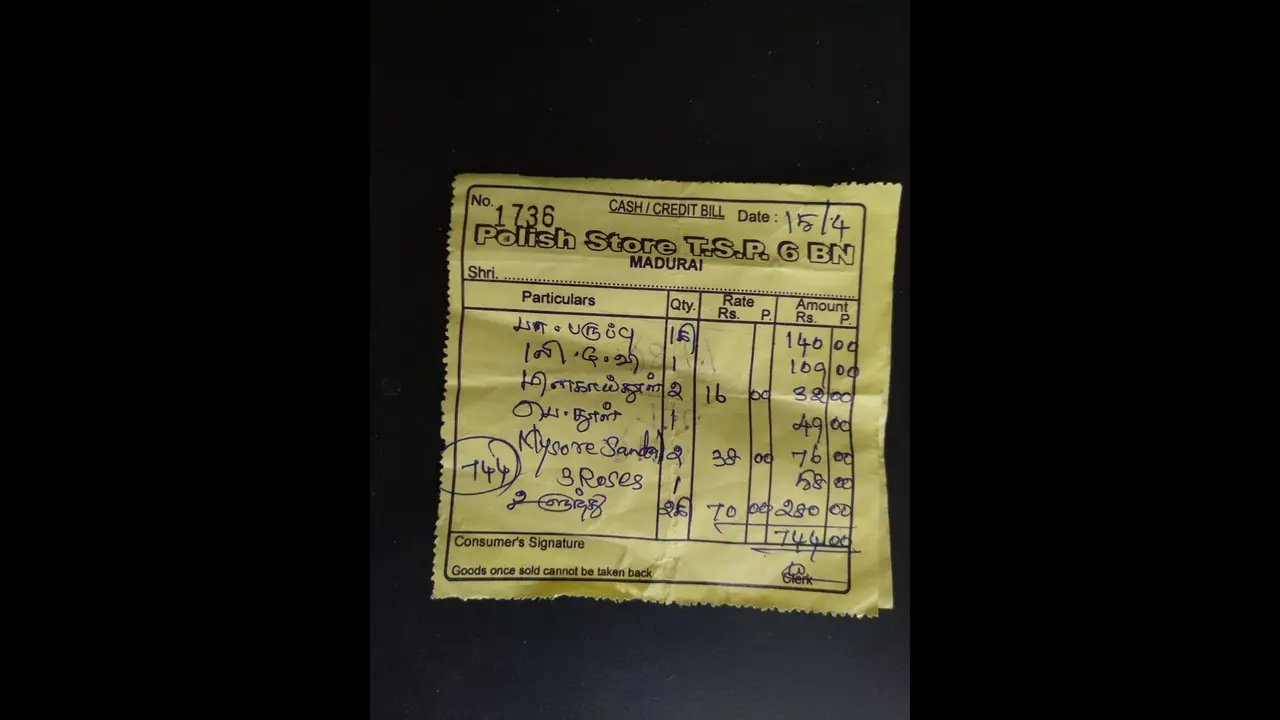 No. 1736 CASH / CREDIT BILL Date : 15/4
Polish Store T.S.P. 6 BN
MADURAI
Shri.
Particulars Qty. Rate Rs. P. Amount Rs. P.
பா. பருப்பு 1கி 140 00
1 109 00
மிளகாய்தூள் 2 16 00 32 00
தூள் 1 49 00
Mysore Sandal 2 38 00 76 00
744
3 Roses 1 58 00
உளுந்து 70 00 280 00
744 00
Consumer's Signature
Goods once sold cannot be taken back Clerk